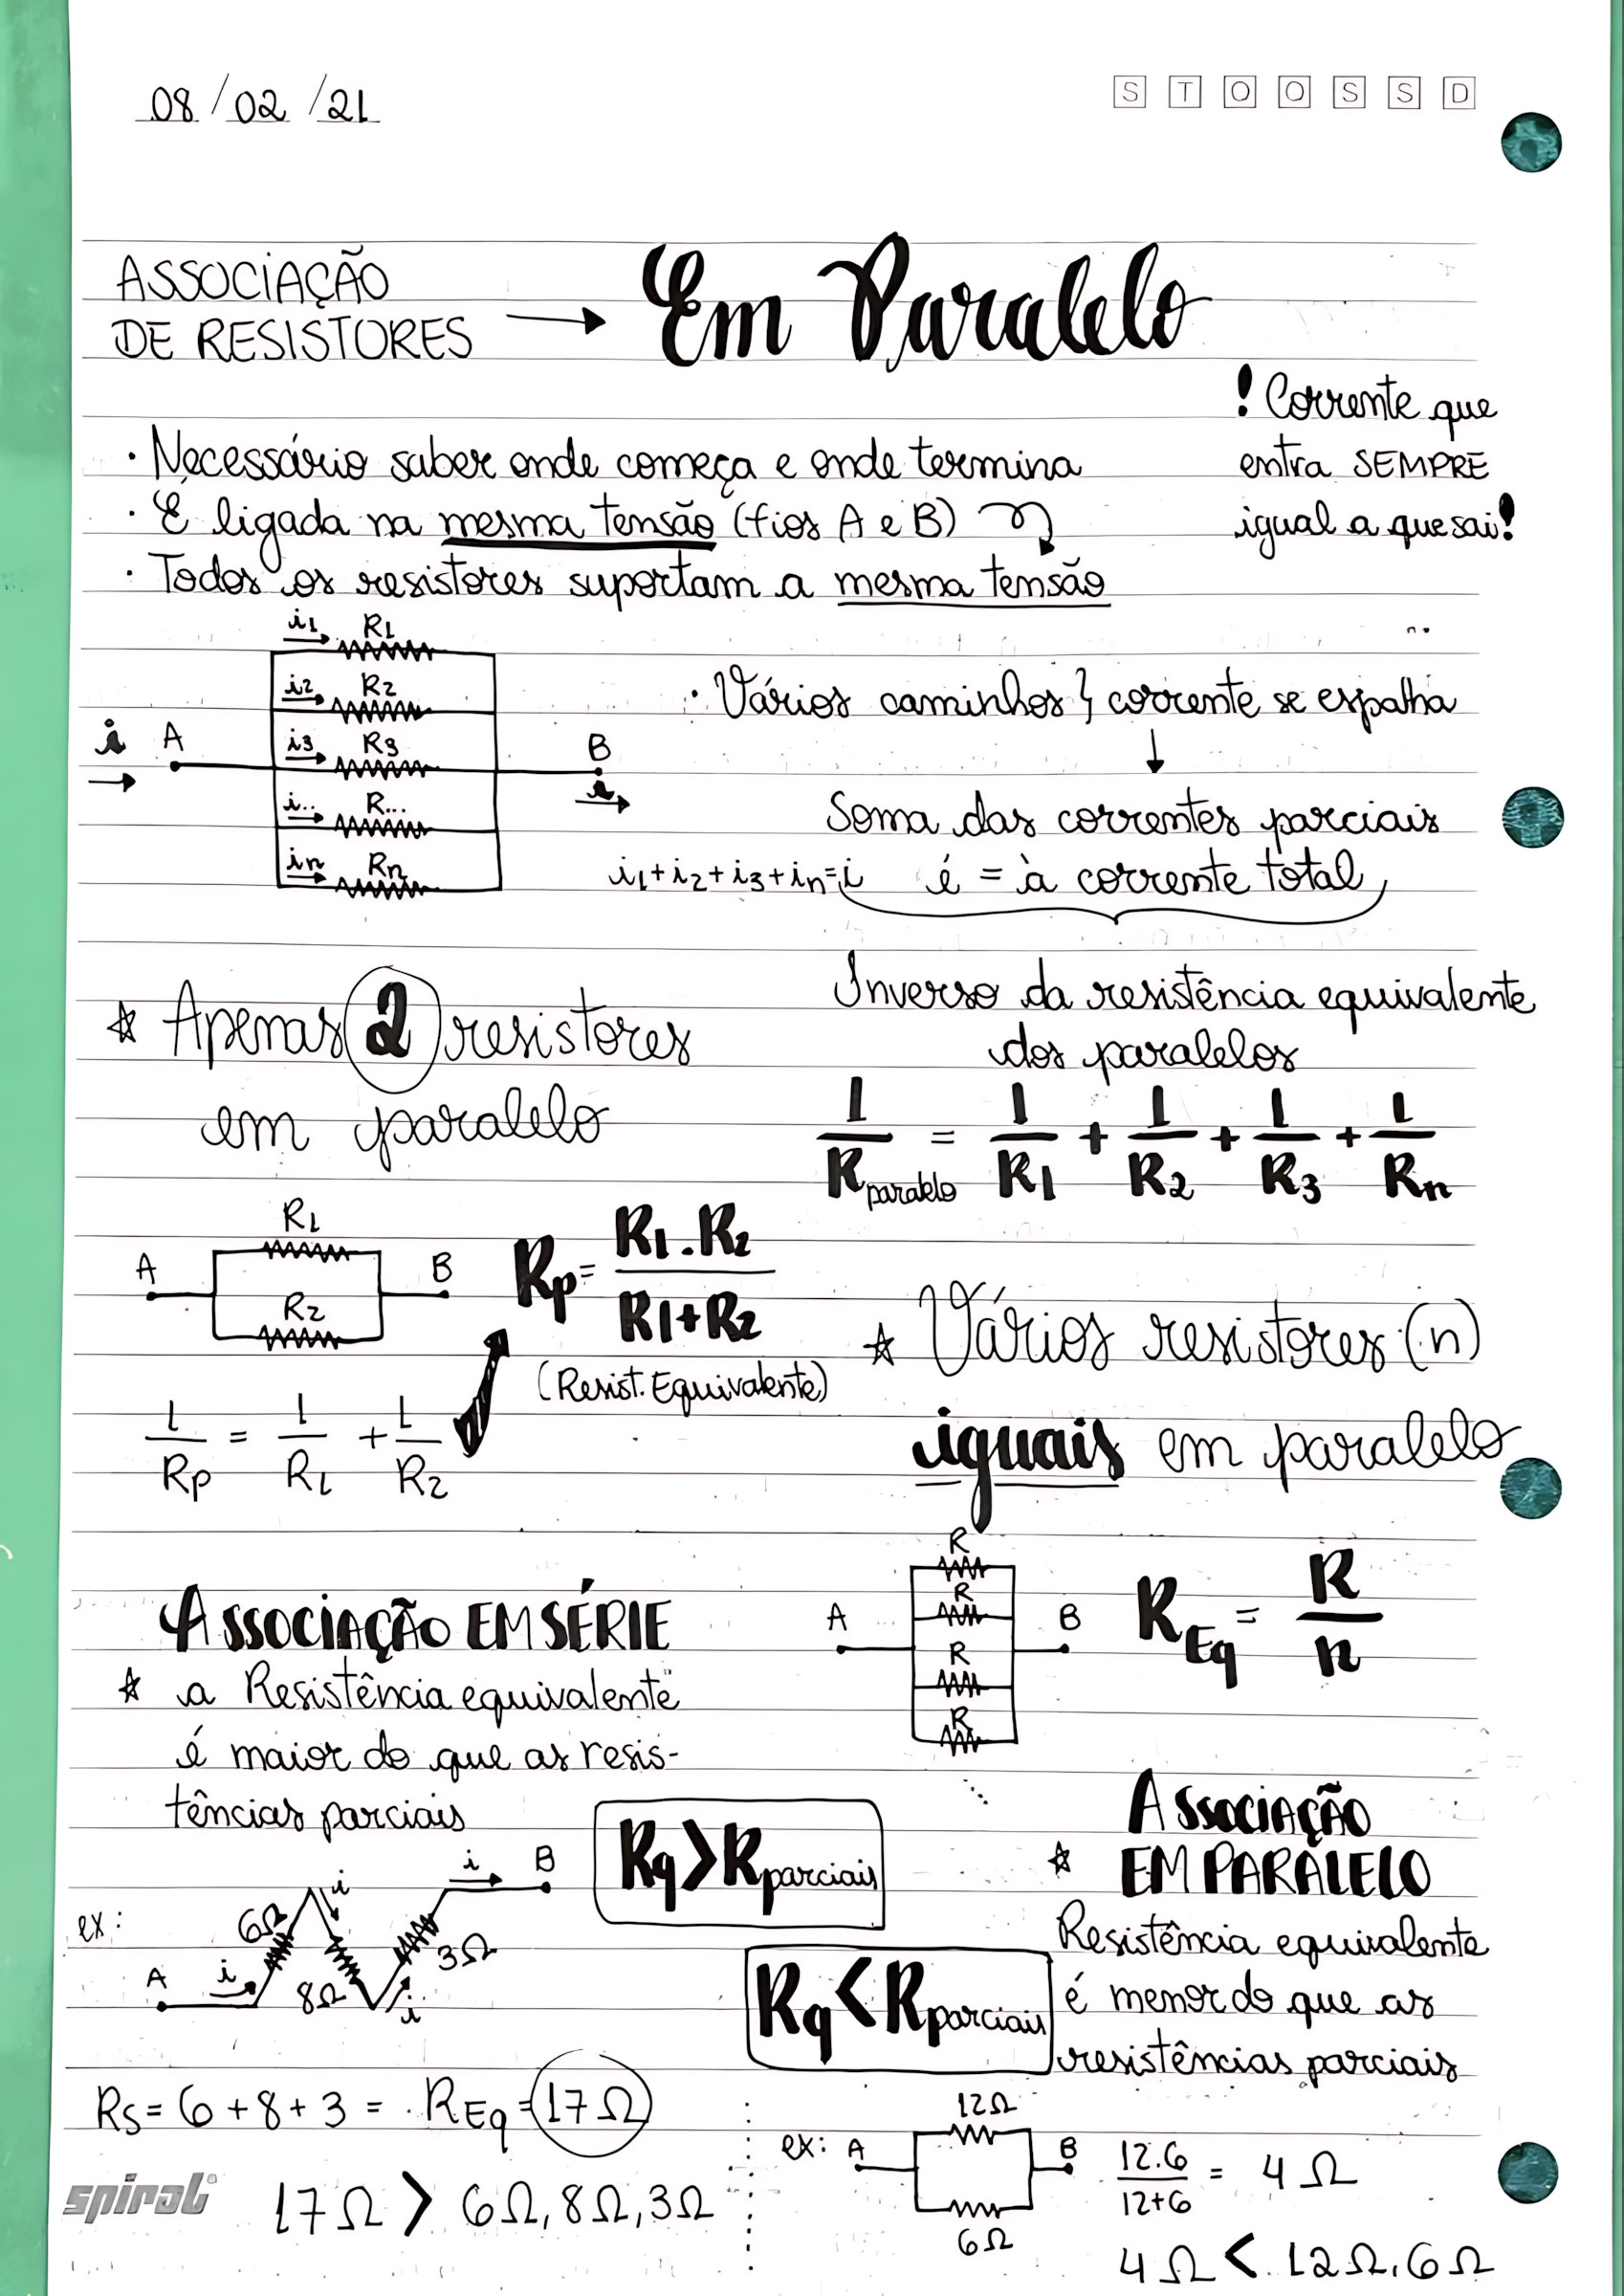 08/02/21
S T Q Q S S D
ASSOCIAÇÃO
DE RESISTORES → Em Paralelo
! Corrente que
entra SEMPRE
igual a que sai!
· Necessário saber onde começa e onde termina
· É ligada na mesma tensão (fios A e B)
· Todos os resistores suportam a mesma tensão
i1 R1
i2 R2
i A i3 R3 B
i.. R... i
in Rn
· Vários caminhos } corrente se espalha
↓
Soma das correntes parciais
i1+i2+i3+in=i é = à corrente total
Inverso da resistência equivalente
dos paralelos
1/Rparalelo = 1/R1 + 1/R2 + 1/R3 + 1/Rn
* Apenas 2 resistores
em paralelo
R1
A B
R2
Rp = R1.R2/R1+R2
(Resist. Equivalente)
1/Rp = 1/R1 + 1/R2
* Vários resistores (n)
iguais em paralelo
R
R
A B
R
R
REq = R/n
ASSOCIAÇÃO EM SÉRIE
* a Resistência equivalente
é maior do que as resis-
tências parciais
Rq > Rparciais
ex: A i 6Ω i 8Ω i 3Ω i B
RS = 6+8+3 = REq = 17Ω
17Ω > 6Ω, 8Ω, 3Ω
ASSOCIAÇÃO
* EM PARALELO
Resistência equivalente
é menor do que as
resistências parciais
Rq < Rparciais
12Ω
ex: A B 12.6/12+6 = 4Ω
6Ω
4Ω < 12Ω, 6Ω
spiral